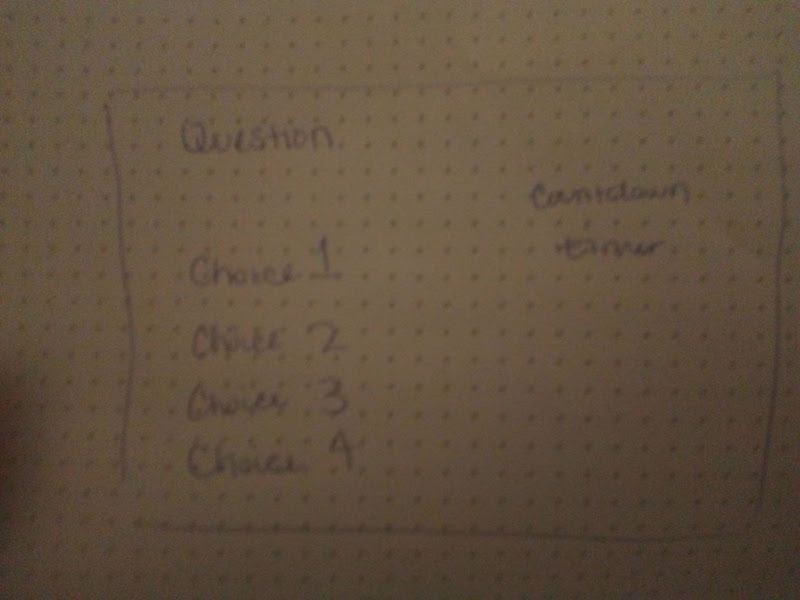 Question.
Countdown
timer
Choice 1
Choice 2
Choice 3
Choice 4